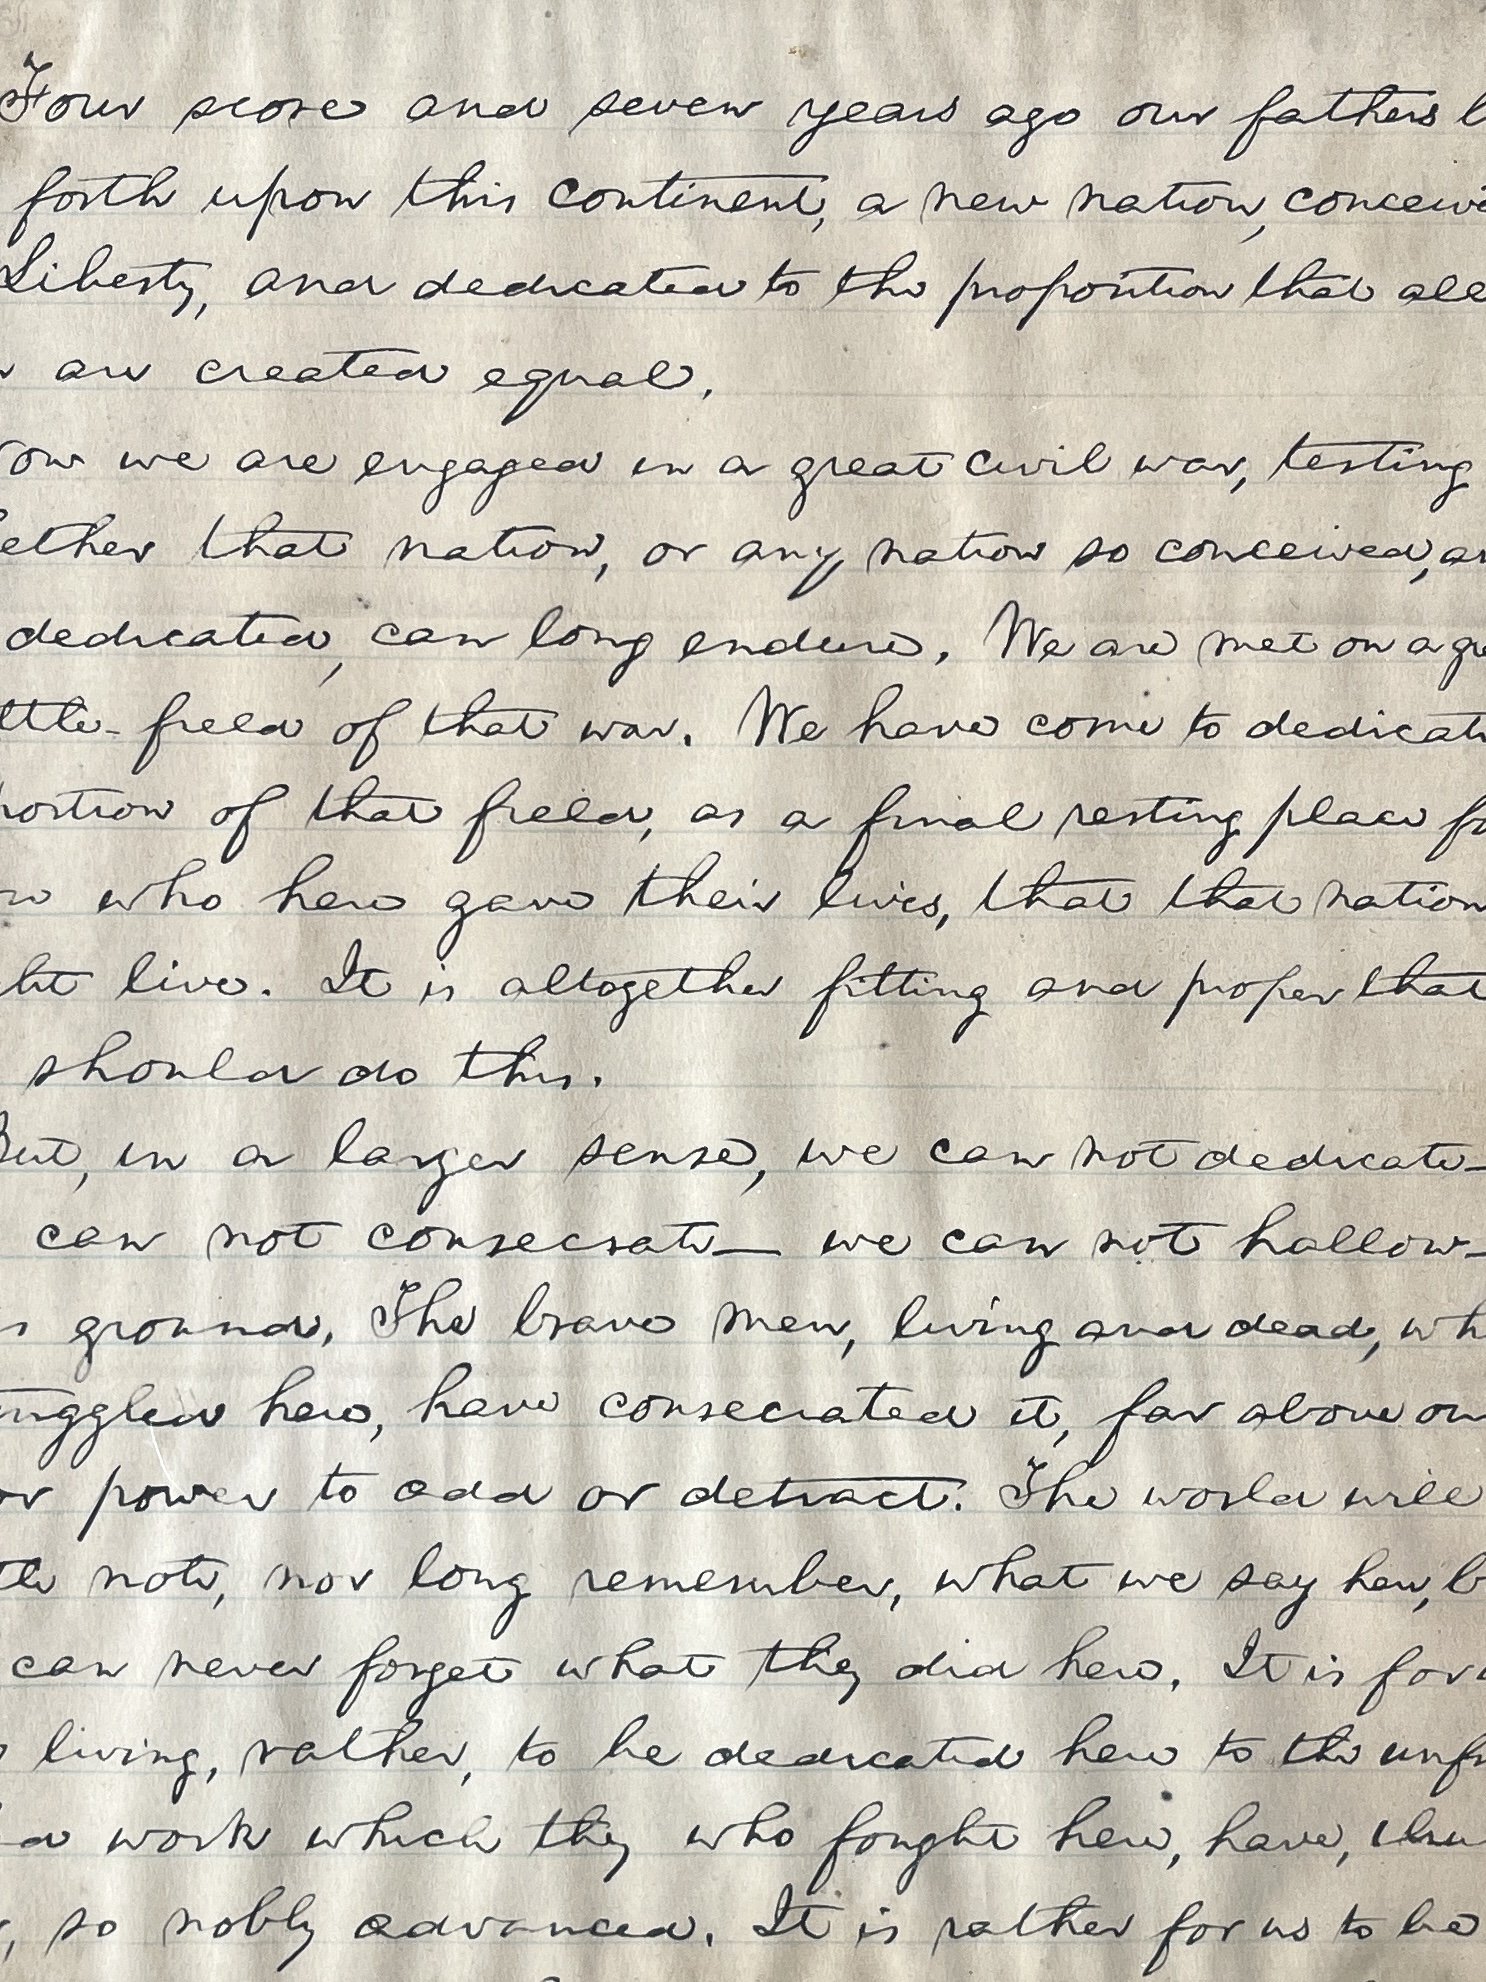 Four score and seven years ago our fathers b
forth upon this continent, a new nation, conceiv
Liberty, and dedicated to the proposition that all
are created equal.
ow we are engaged in a great civil war, testing
ether that nation, or any nation so conceived, an
dedicated, can long endure. We are met on a gre
ttle-field of that war. We have come to dedicate
portion of that field, as a final resting place fo
who here gave their lives, that that nation
ht live. It is altogether fitting and proper that
should do this.
But, in a larger sense, we can not dedicate—
can not consecrate— we can not hallow—
s ground. The brave men, living and dead, wh
uggled here, have consecrated it, far above our
or power to add or detract. The world will
tle note, nor long remember, what we say here, b
can never forget what they did here. It is for
living, rather, to be dedicated here to the unfi
d work which they who fought here, have, thu
, so nobly advanced. It is rather for us to be